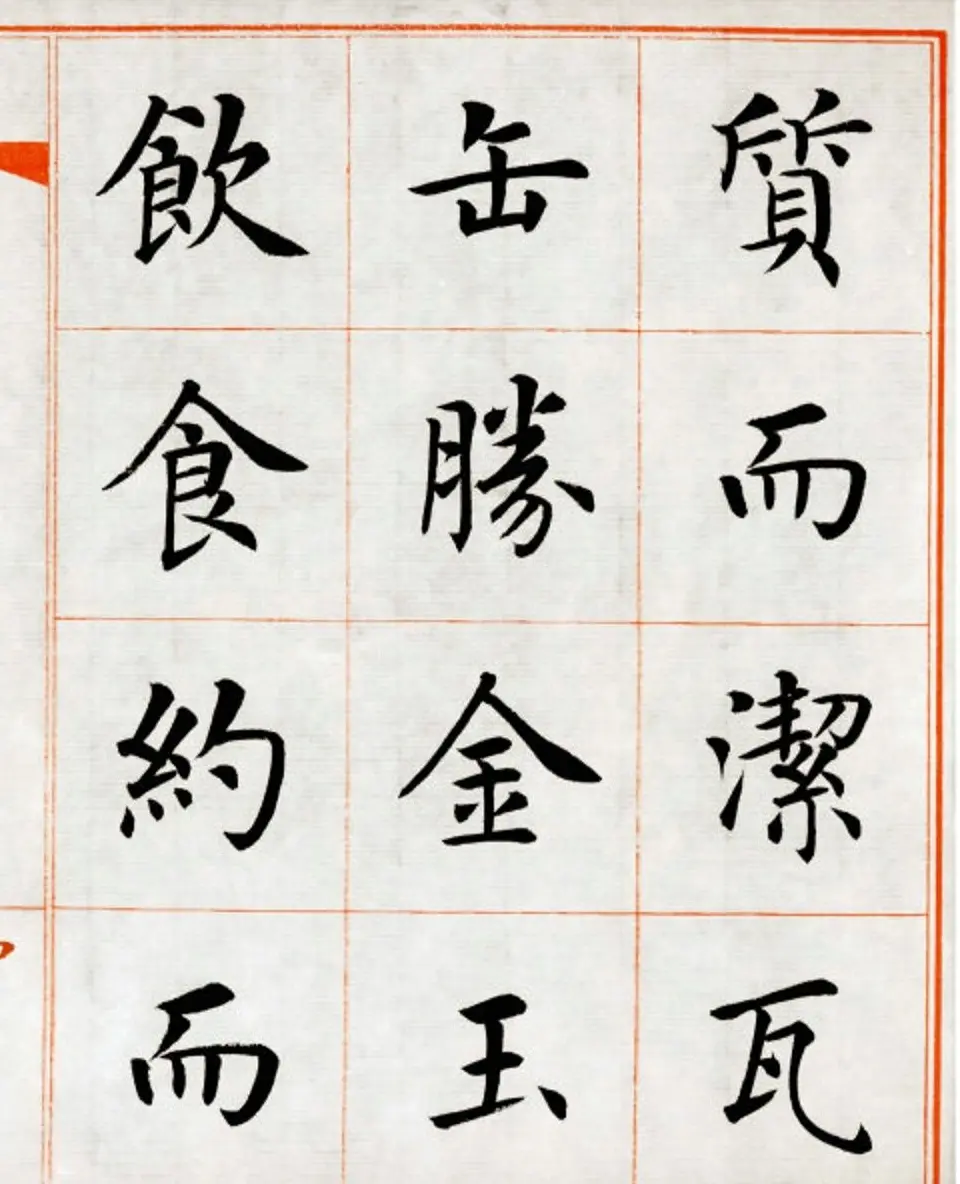 質而潔瓦
缶勝金玉
飲食約而